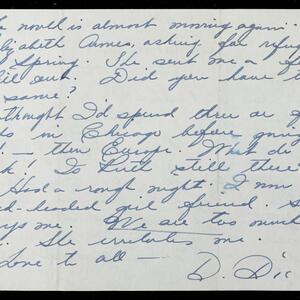 novel is almost moving again.
Elizabeth Ames, asking for refug
Spring. She sent me a f
sent. Did you have
same?
thought I'd spend three or
in Chicago before going
— then Europe. What do
! Is Ruth still there
Had a rough night. I now
-headed girl friend. S
ys me. We are too much
. She irritates me.
Love to all —
D. Dic